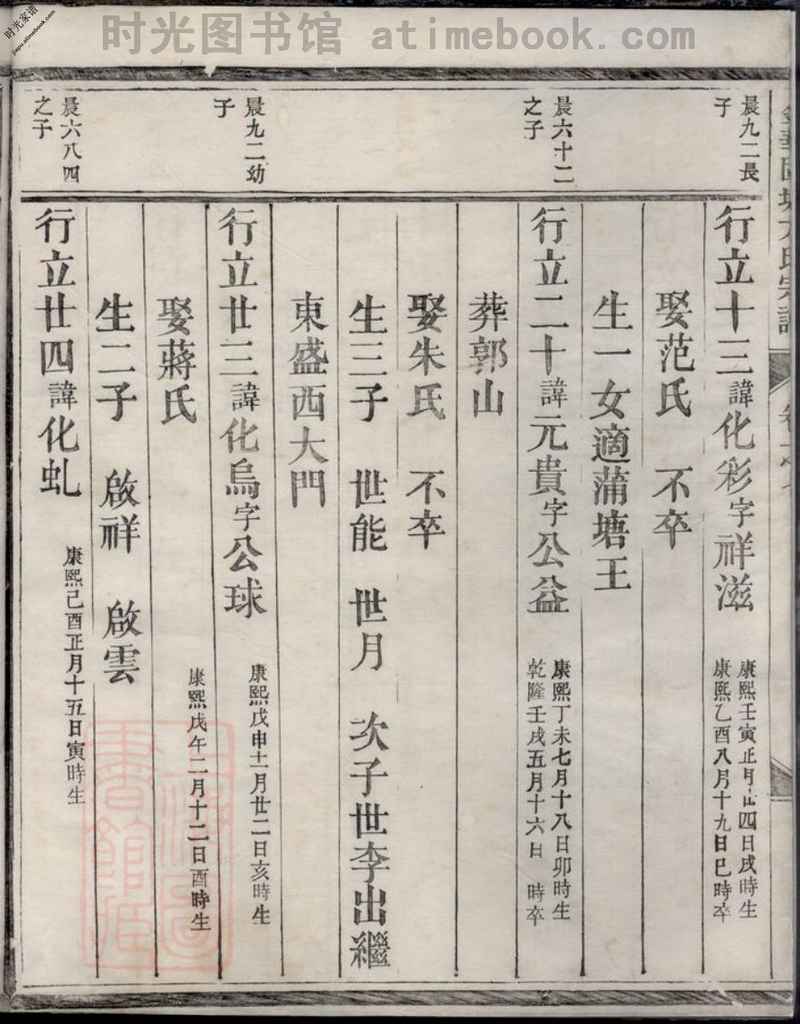 时光图书馆 atimebook.com
时光家谱
www.atimebook.com
晨九二長
子
行立十三諱化彩字祥滋
康熙壬寅正月廿四日戌時生
康熙乙酉八月十九日巳時卒
娶范氏 不卒
生一女適蒲塘王
晨六十二
之子
行立二十諱元貴字公益
康熙丁未七月十八日卯時生
乾隆壬戌五月十六日 時卒
葬郭山
娶朱氏 不卒
生三子 世能 世月 次子世李出繼
東盛西大門
晨九二幼
子
行立廿三諱化烏字公球
康熙戊申十一月廿二日亥時生
娶蔣氏
康熙戊午二月十二日酉時生
生二子 啟祥 啟雲
晨六八四
之子
行立廿四諱化虬
康熙己酉正月十五日寅時生